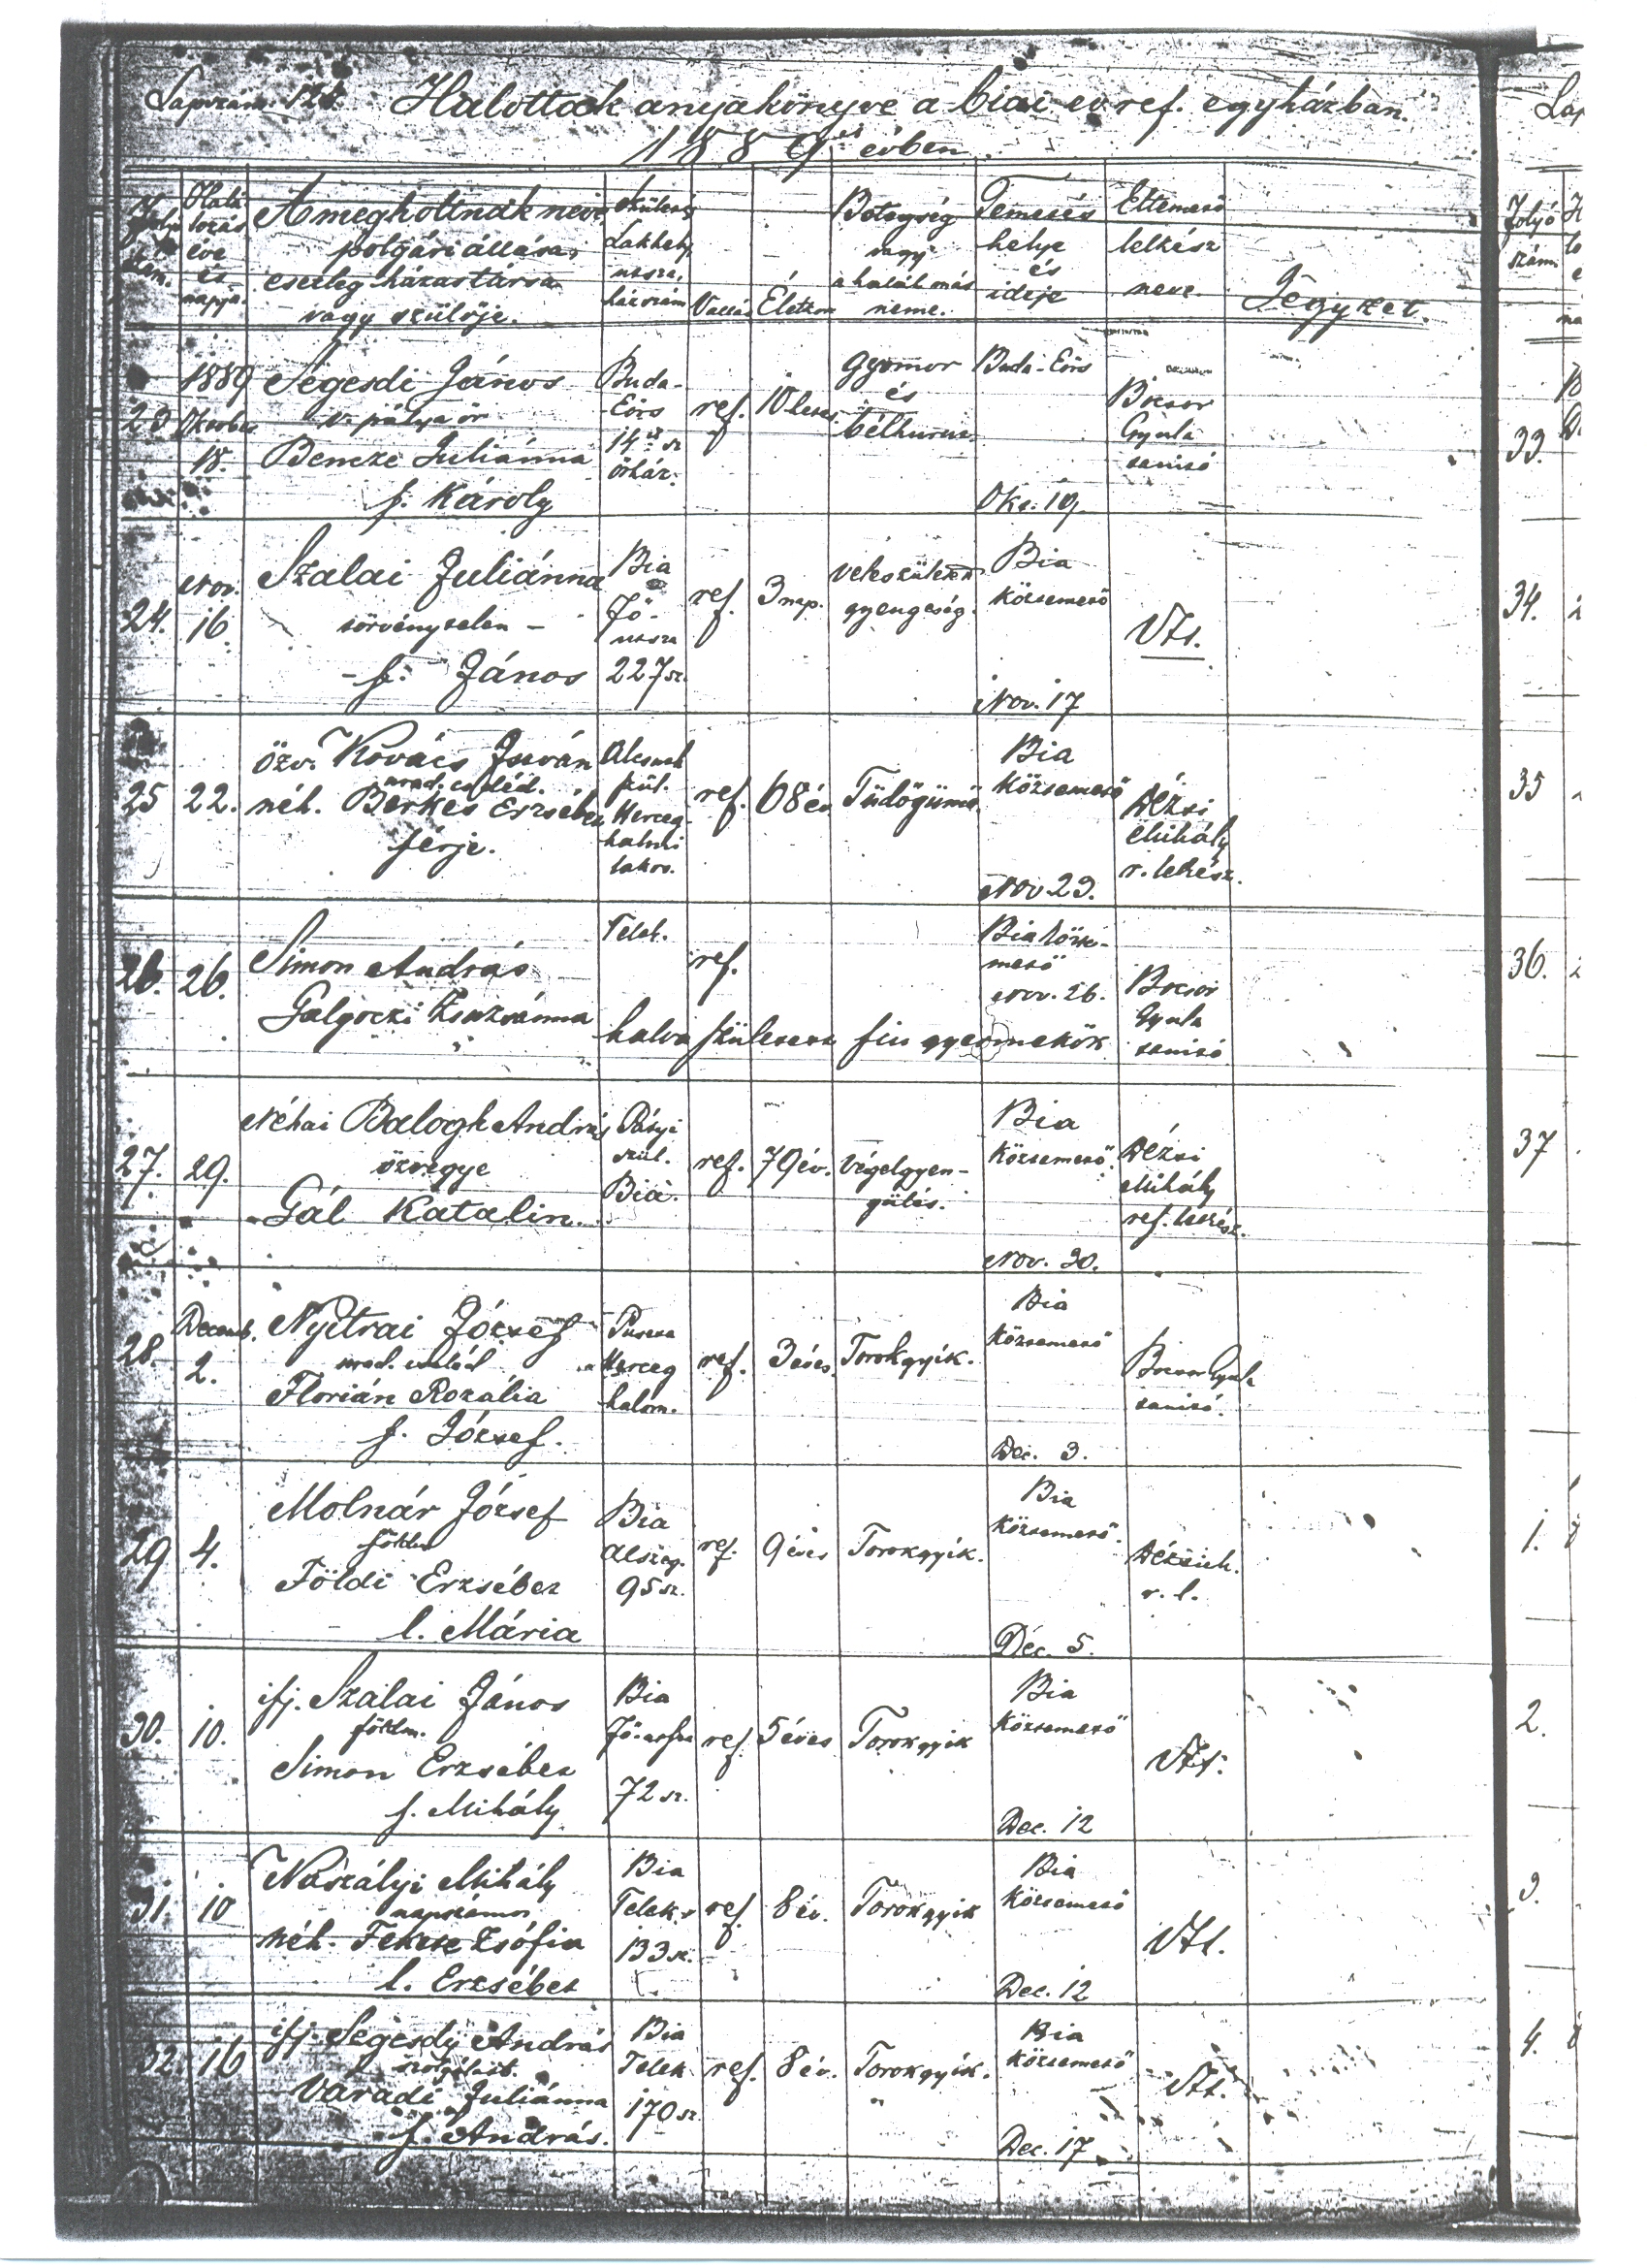 Lapszám 128. Halottak anyakönyve a biai ev. ref. egyházban.
1889ik évben.
Folyó szám.
Halálozás éve és napja.
A megholtnak neve
polgári állása,
esetleg házastársa
vagy szülője.
Születés
Lakhely
utsza,
házszám
Vallás
Életkor
Betegség
vagy
a halál más
neme.
Temetés
helye
és
ideje
Eltemető
lelkész
neve.
Jegyzet.
23
1889
Október
18.
Segesdi János
v. pályaőr
Bencze Juliánna
f. Károly
Buda-
Eörs
14ik sz
őrház.
ref.
10 hetes
Gyomor
és
bélhurut.
Buda-Eörs
Okt. 19.
Bocsor
Gyula
tanitó
24.
Nov.
16.
Szalai Juliánna
törvénytelen -
- f. János
Bia
Fő-
utsza
227 sz.
ref.
3 nap.
veleszületett
gyengeség.
Bia
köztemető
Nov. 17
U.az.
25
22.
özv. Kovács István
urad. cseléd.
néh. Berkes Erzsébet
férje.
Alcsuth
szül.
Herceg-
halmi
lakos.
ref.
68 év
Tüdőgümő
Bia
köztemető
Nov 23.
Dézsi
Mihály
r. lelkész.
26.
26.
Simon András
Galgoczi Zsuzsánna
Telek.
ref.
halva született fiu gyermekök
Bia közte-
mető
Nov. 26.
Bocsor
Gyula
tanitó
27.
29.
Néhai Balogh András
özvegye
Gál Katalin.
Pátyi
szül.
Bia.
ref.
79 év.
Végelgyen-
gülés.
Bia
köztemető.
Nov. 30.
Dézsi
Mihály
ref. lelkész.
28.
Decemb.
2.
Nyitrai József
urad. cseléd
Florián Rozália
f. József.
Puszta
Herceg
halom.
ref.
3 éves.
Torokgyík.
Bia
köztemető
Dec. 3.
Bocsor Gyula
tanitó.
29
4.
Molnár József
földm
Földi Erzsébet
l. Mária
Bia
Alszeg.
95 sz.
ref.
9 éves
Torokgyík.
Bia
köztemető.
Déc. 5.
Dézsi M.
r. l.
30.
10.
ifj. Szalai János
földm.
Simon Erzsébet
f. Mihály
Bia
Fő-utsza
72 sz.
ref.
5 éves
Torokgyik
Bia
köztemető
Dec. 12
U.az.
31.
10
Naszályi Mihály
napszámos
néh. Fekete Zsófia
l. Erzsébet
Bia
Telek
133 sz.
ref.
8 év.
Torokgyik
Bia
köztemető
Dec. 12
U.az.
32.
16
ifj. Segesdy András
Váradi Juliánna
f. András.
Bia
Telek
170 sz.
ref.
8 év.
Torokgyík.
Bia
köztemető
Dec. 17
U.az.
Lap
Folyó
szám
33.
34.
35
36.
37
1.
2.
3.
4.